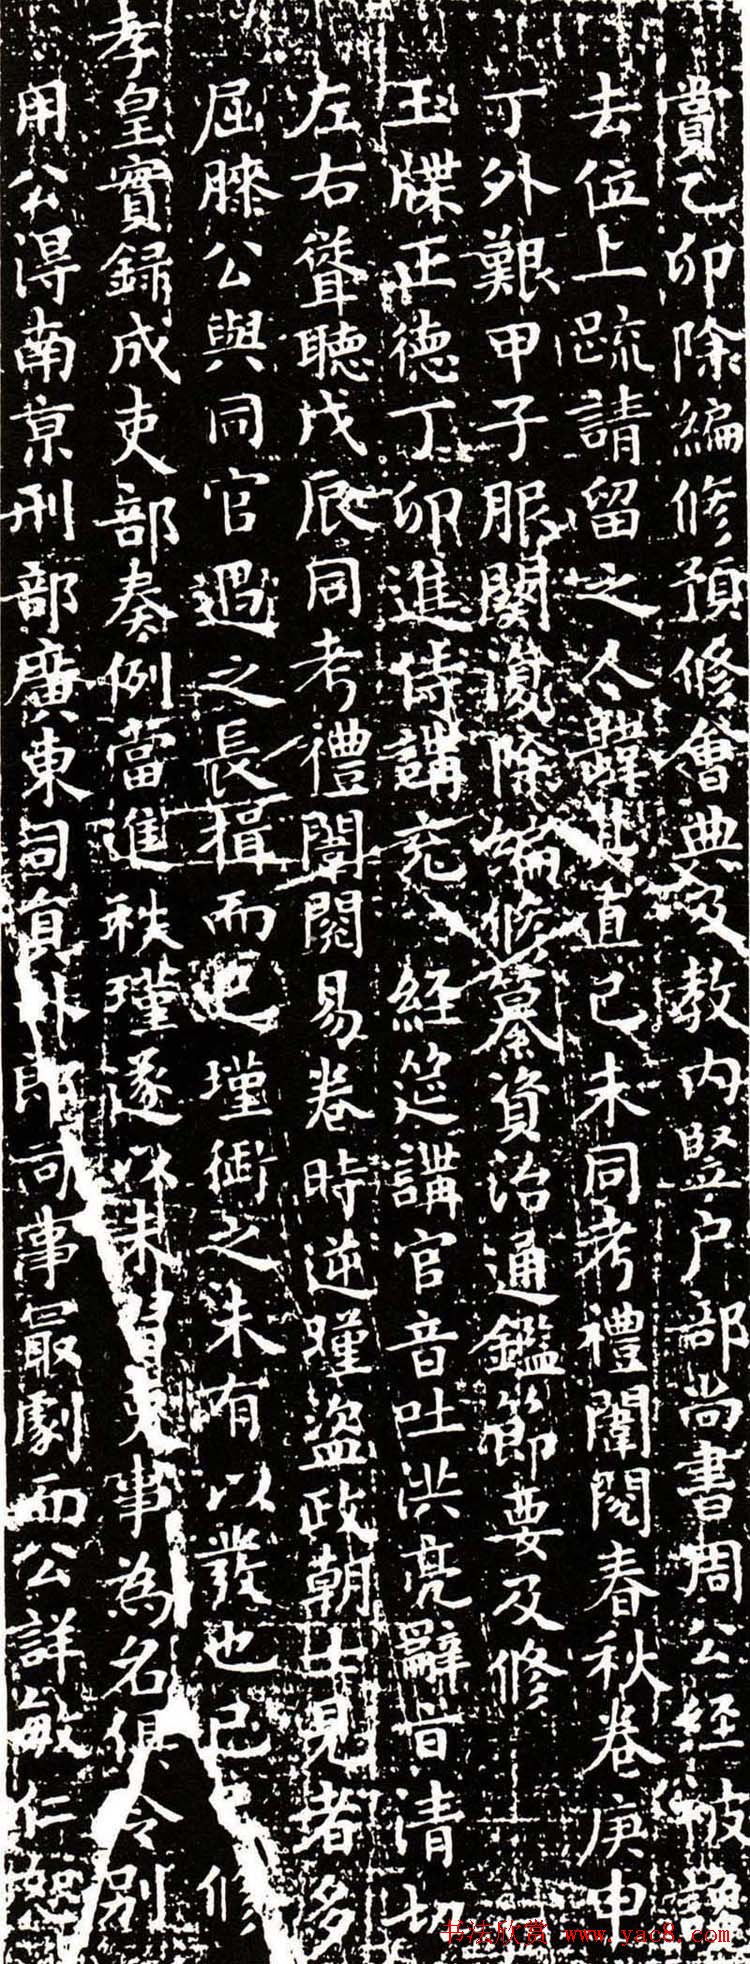 賞乙卯除編修預修會典及教內豎户部尚書周公経被讒
去位上疏請留之人韙其直己未同考禮闈閱春秋卷庚申
丁外艱甲子服闋復除編修纂資治通鑑節要及修
玉牒正德丁卯進侍講充 経筵講官音吐洪亮辭旨清切
左右聳聽戊辰同考禮闈閱易卷時逆瑾盜政朝士見者多
屈膝公與同官遇之長揖而已瑾銜之未有以發也己 修
孝皇實録成吏部奏例當進秩瑾遂以未習吏事為名俱令別
用公得南京刑部廣東司員外郎司事最劇而公詳敏仁恕
书法欣赏 www.yac8.com